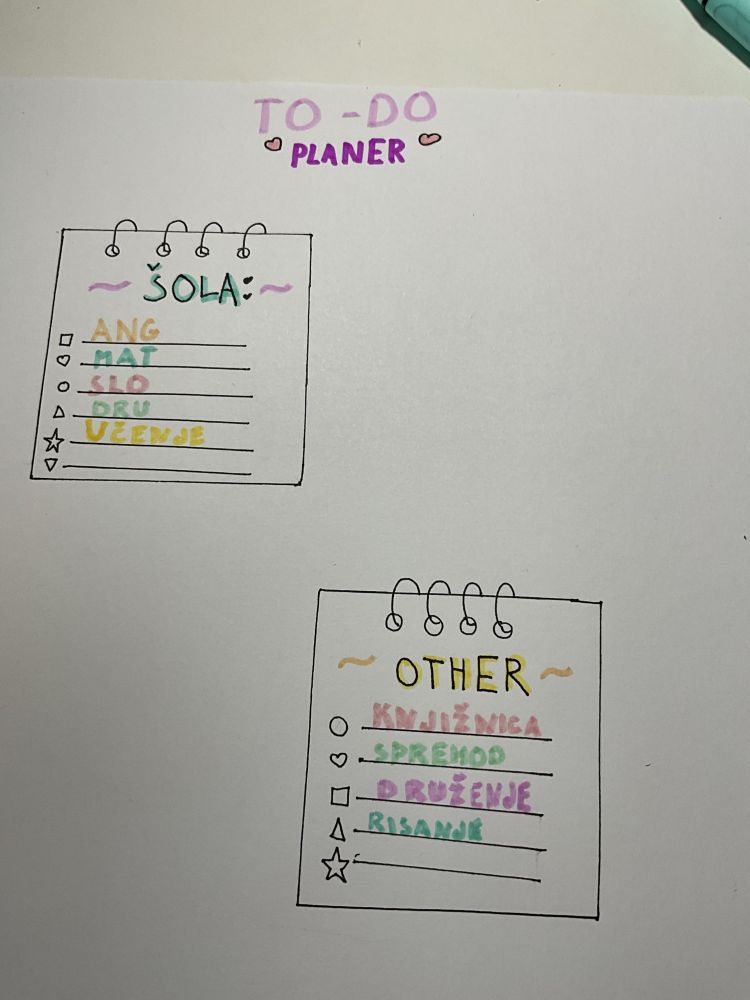 TO-DO
PLANER
ŠOLA:
ANG
MAT
SLO
DRU
UČENJE
OTHER
KNJIŽNICA
SPREHOD
DRUŽENJE
RISANJE